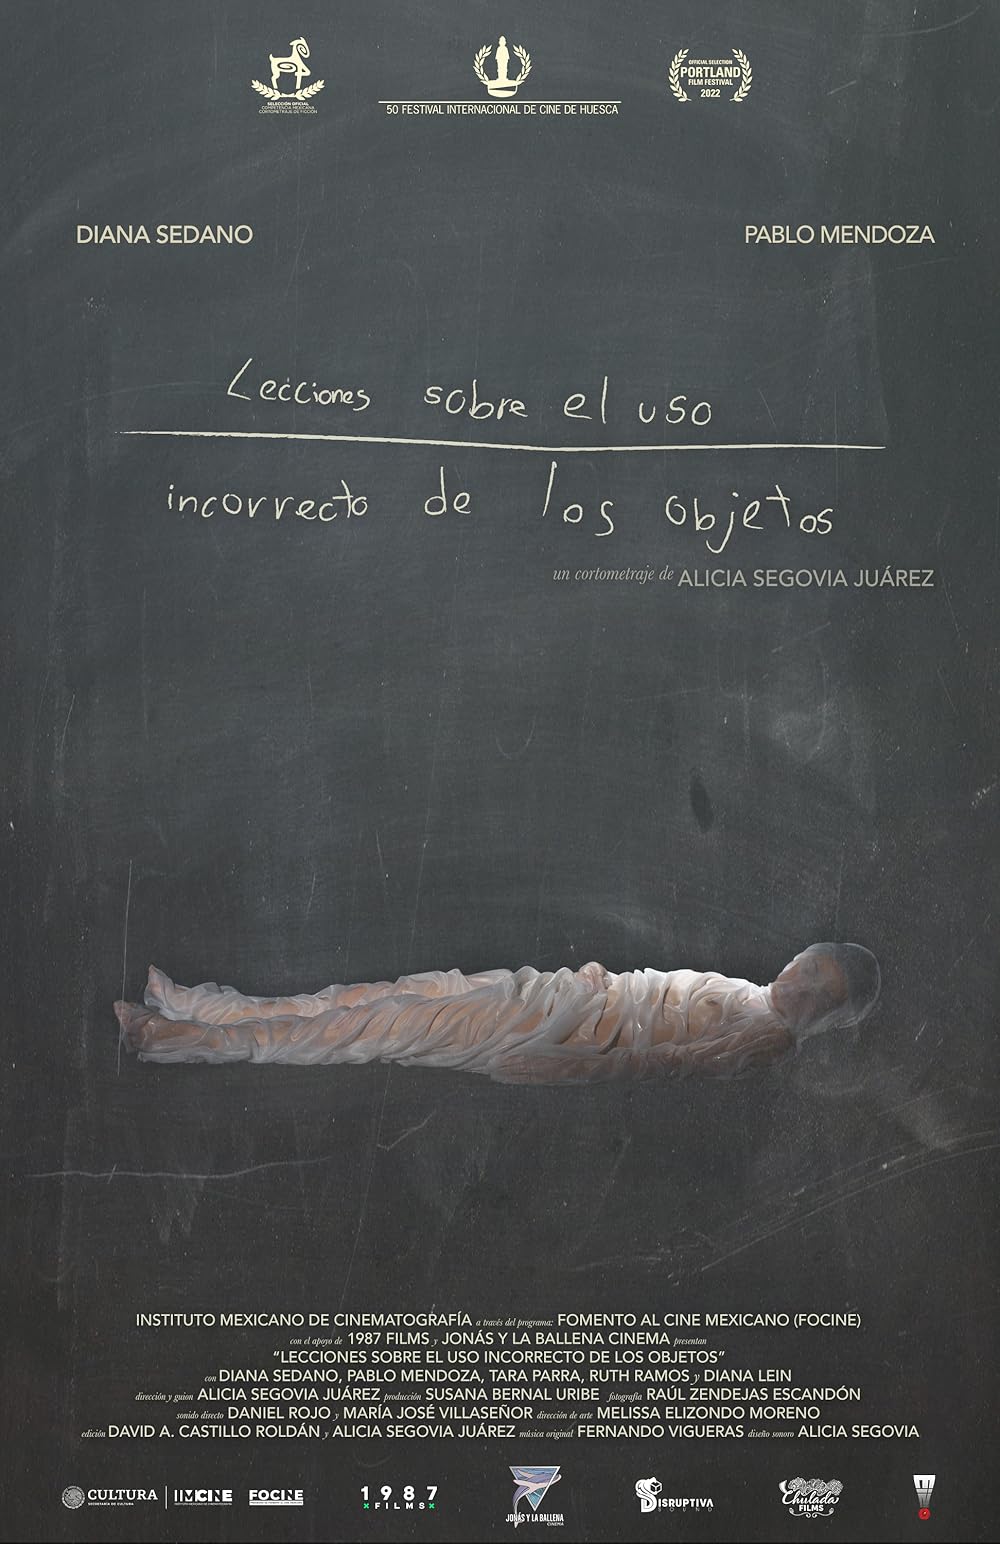 SELECCIÓN OFICIAL
COMPETENCIA MEXICANA
CORTOMETRAJE DE FICCIÓN
50 FESTIVAL INTERNACIONAL DE CINE DE HUESCA
OFFICIAL SELECTION
PORTLAND
FILM FESTIVAL
2022
DIANA SEDANO
PABLO MENDOZA
Lecciones sobre el uso
incorrecto de los objetos
un cortometraje de ALICIA SEGOVIA JUÁREZ
INSTITUTO MEXICANO DE CINEMATOGRAFÍA a través del programa: FOMENTO AL CINE MEXICANO (FOCINE)
con el apoyo de 1987 FILMS y JONÁS Y LA BALLENA CINEMA presentan
“LECCIONES SOBRE EL USO INCORRECTO DE LOS OBJETOS”
con DIANA SEDANO, PABLO MENDOZA, TARA PARRA, RUTH RAMOS y DIANA LEIN
dirección y guion ALICIA SEGOVIA JUÁREZ producción SUSANA BERNAL URIBE fotografía RAÚL ZENDEJAS ESCANDÓN
sonido directo DANIEL ROJO y MARÍA JOSÉ VILLASEÑOR dirección de arte MELISSA ELIZONDO MORENO
edición DAVID A. CASTILLO ROLDÁN y ALICIA SEGOVIA JUÁREZ música original FERNANDO VIGUERAS diseño sonoro ALICIA SEGOVIA
CULTURA
SECRETARÍA DE CULTURA
IMCINE
FOCINE
1987
FILMS
JONÁS Y LA BALLENA
CINEMA
DISRUPTIVA
SOUND
Chulada
FILMS